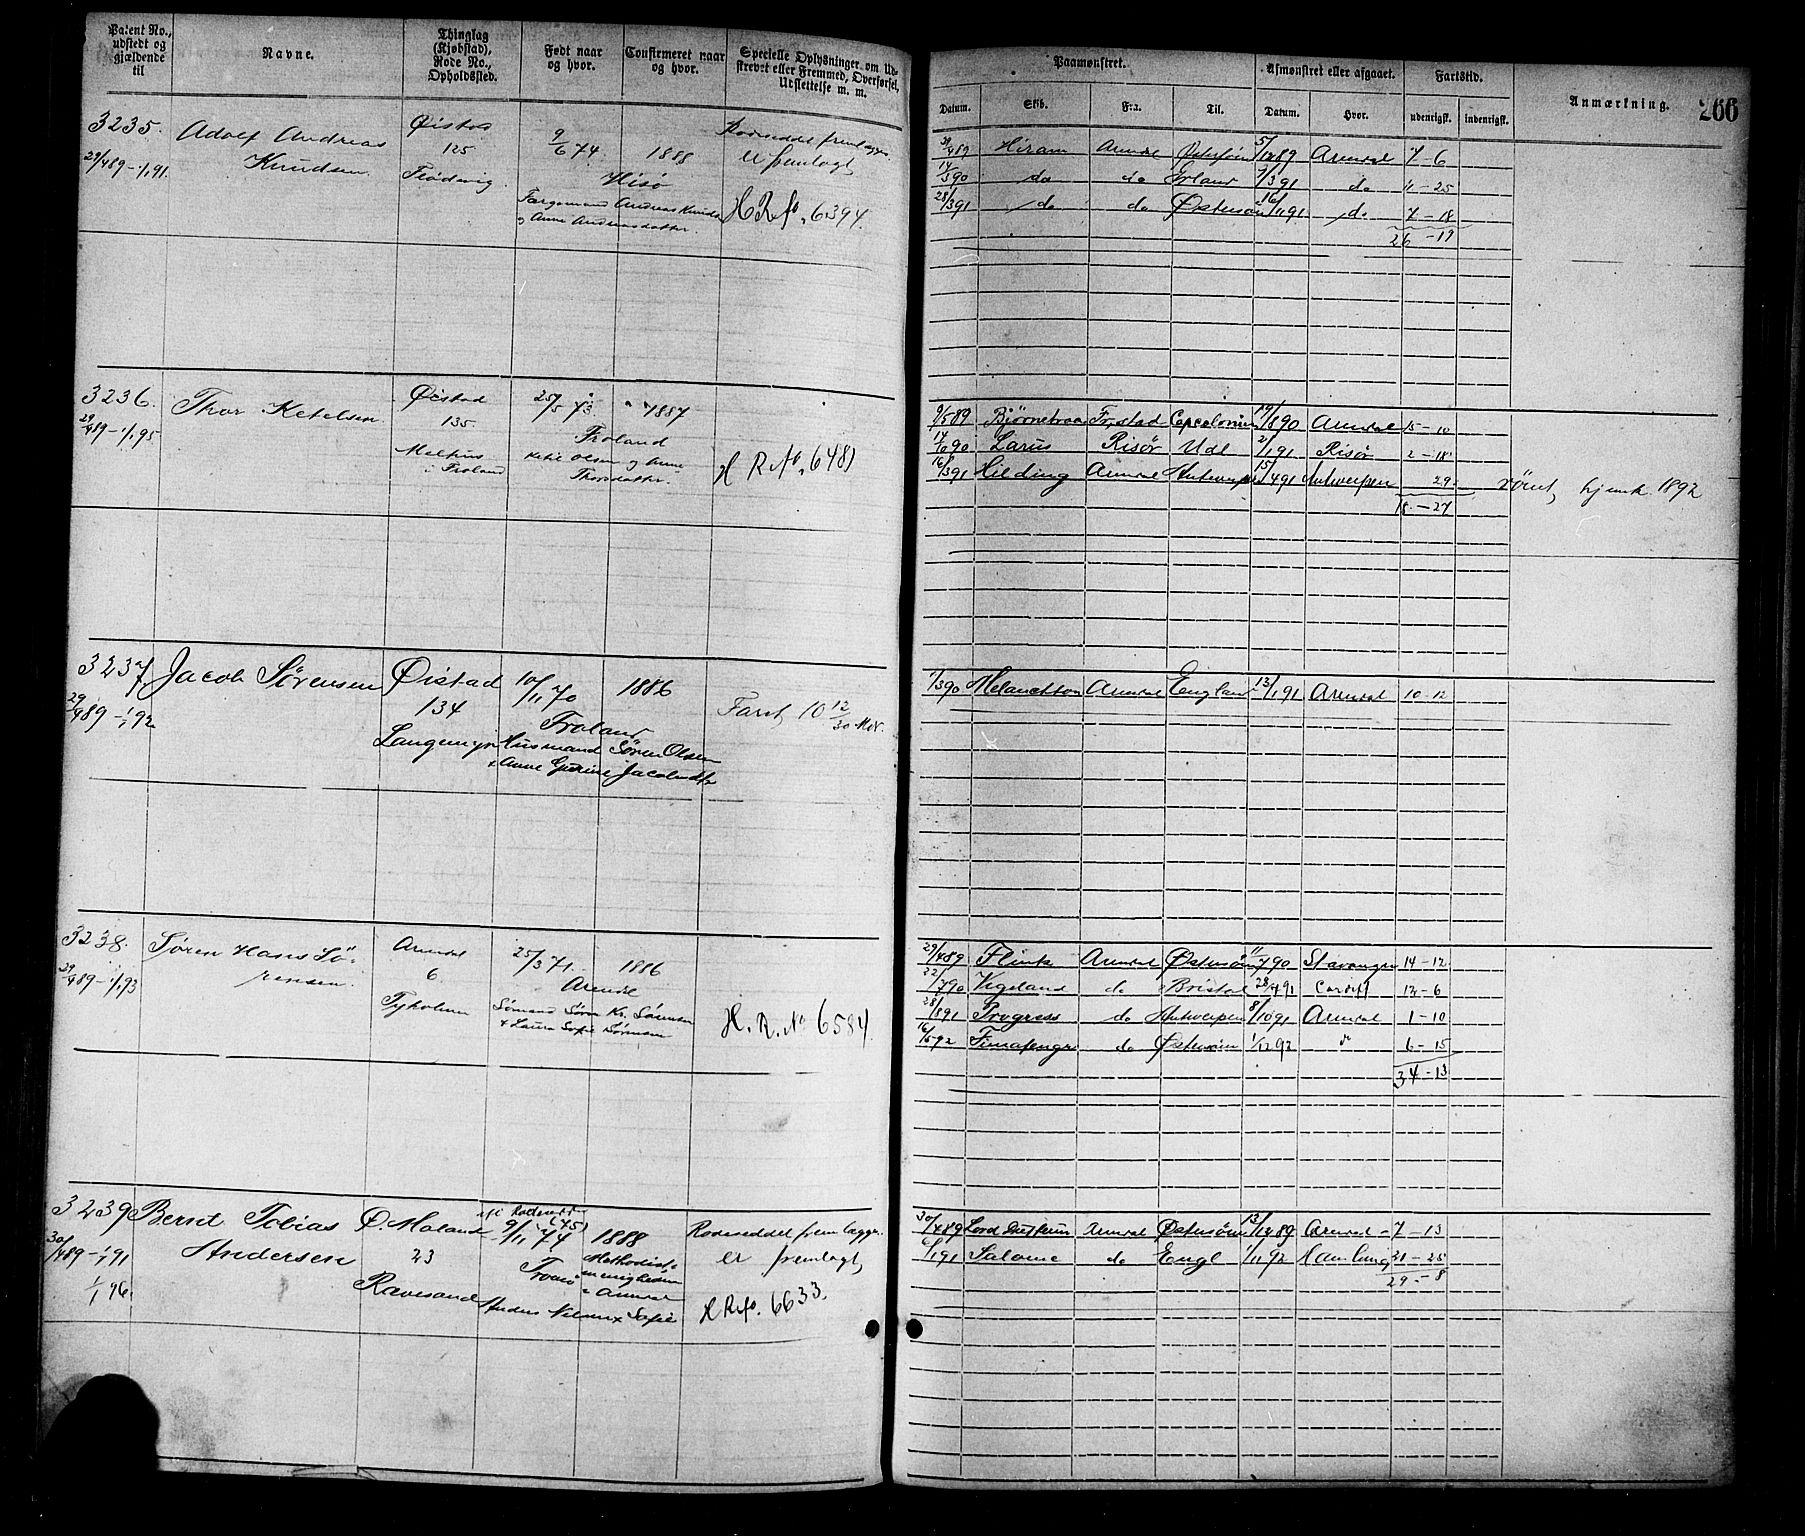 Patent No., udstedt og gjældende til
Navne.
Thinglag (Kjøbstad), Rode No., Opholdssted.
Født naar og hvor.
Confirmeret naar og hvor.
Specielle Oplysninger om Udskrevet eller Fremmed, Overførsel, Udslettelse m. m.
Paamønstret.
Datum.
Skib.
Fra.
Til.
Afmønstret eller afgaaet.
Datum.
Hvor.
Fartstid.
udenrigsk.
indenrigsk.
Anmærkning.
266
3235.
29/489-1/191.
Adolf Andreas
Knudsen
Øistad
125
Flødevig.
9/6 74
1888
Hisø
Andreas Knuds
& Anne Andreasdatter.
Rodeseddel fremlægges
er fremlagt
H R No. 6394.
489 Hiram Arendal Østersøen 5/1289 Arendal 7-6
14/390 do do 7/391 do 11-25
28/391 do do Østersøen 16/1191 do 7-18
26-19
3236.
29/489-1/195
Thor Ketelsen
Øistad
135.
i Froland
25/5 73
1887
Froland
Ketil Olsen og Anne
Thorsdatter.
H R No. 6481
9/589 Fr.stad Capcolonien 19/890 Arendal 15-10
Larus Risør Udl 2/191 Risør 2-18
16/391 Hilding Arendal Antwerpen 15/491 Antwerpen 29
18-27
rømt, hjemk. 1892
3237
29/489-1/192
Jacob Sørensen
Øistad
134
Langemyr
10/11 70
1886
Froland
Husmand Søren Olsen
& Anne Gurine Jacobsdtr
Faret 10 12/30 Mdr.
1/390 Melanchton Arendal England 13/191 Arendal 10-12
3238.
29/489-1/193
Søren Hans Sø-
rensen.
Arendal
6.
Tyholmen
25/3 71.
1886
Arendal
Sømand Søren Kr. Sørensen
& Laura Sofie Sørensen
H. R. No 6584
29/489 Flink Arendal Østersøen 11/790 Stavanger 14-12
22/790 Vigeland do Bristol 28/791 Cardiff 12-6
28/891 Progress do Antwerpen 8/1091 Arendal 1-10
16/592 do Østersøen 1/1292 " 6-15
34-13
3239
30/489-1/191
1/1 96.
Bernt Tobias
Andersen
Ø. Moland
23
Ravesand
9/11 74 (75)
1888
Tromø
Methodist-
menigheden
i Arendal
Anders Nilsen & Sofie
Rodeseddel fremlægges
er fremlagt
H R No. 6633.
30/489 Arendal Østersøen 13/1289 Arendal 7-13
6/191 Salome do Engl 1/1192 Hamburg 21-25
29-8